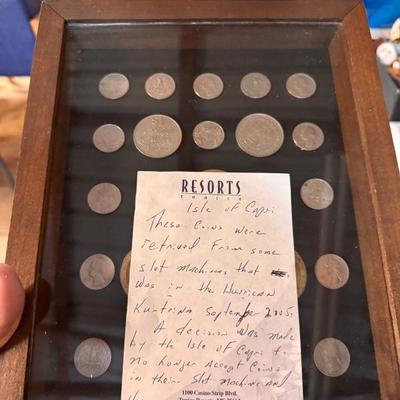 RESORTS
tunica
Isle of Capri
These Coins were
retrived From some
slot machines that
was in the Hurrican
Kuntrina September 2005.
A decision was made
by the Isle of Capri to
no longer Accept Coins
in their slot machine and
1100 Casino Strip Blvd.